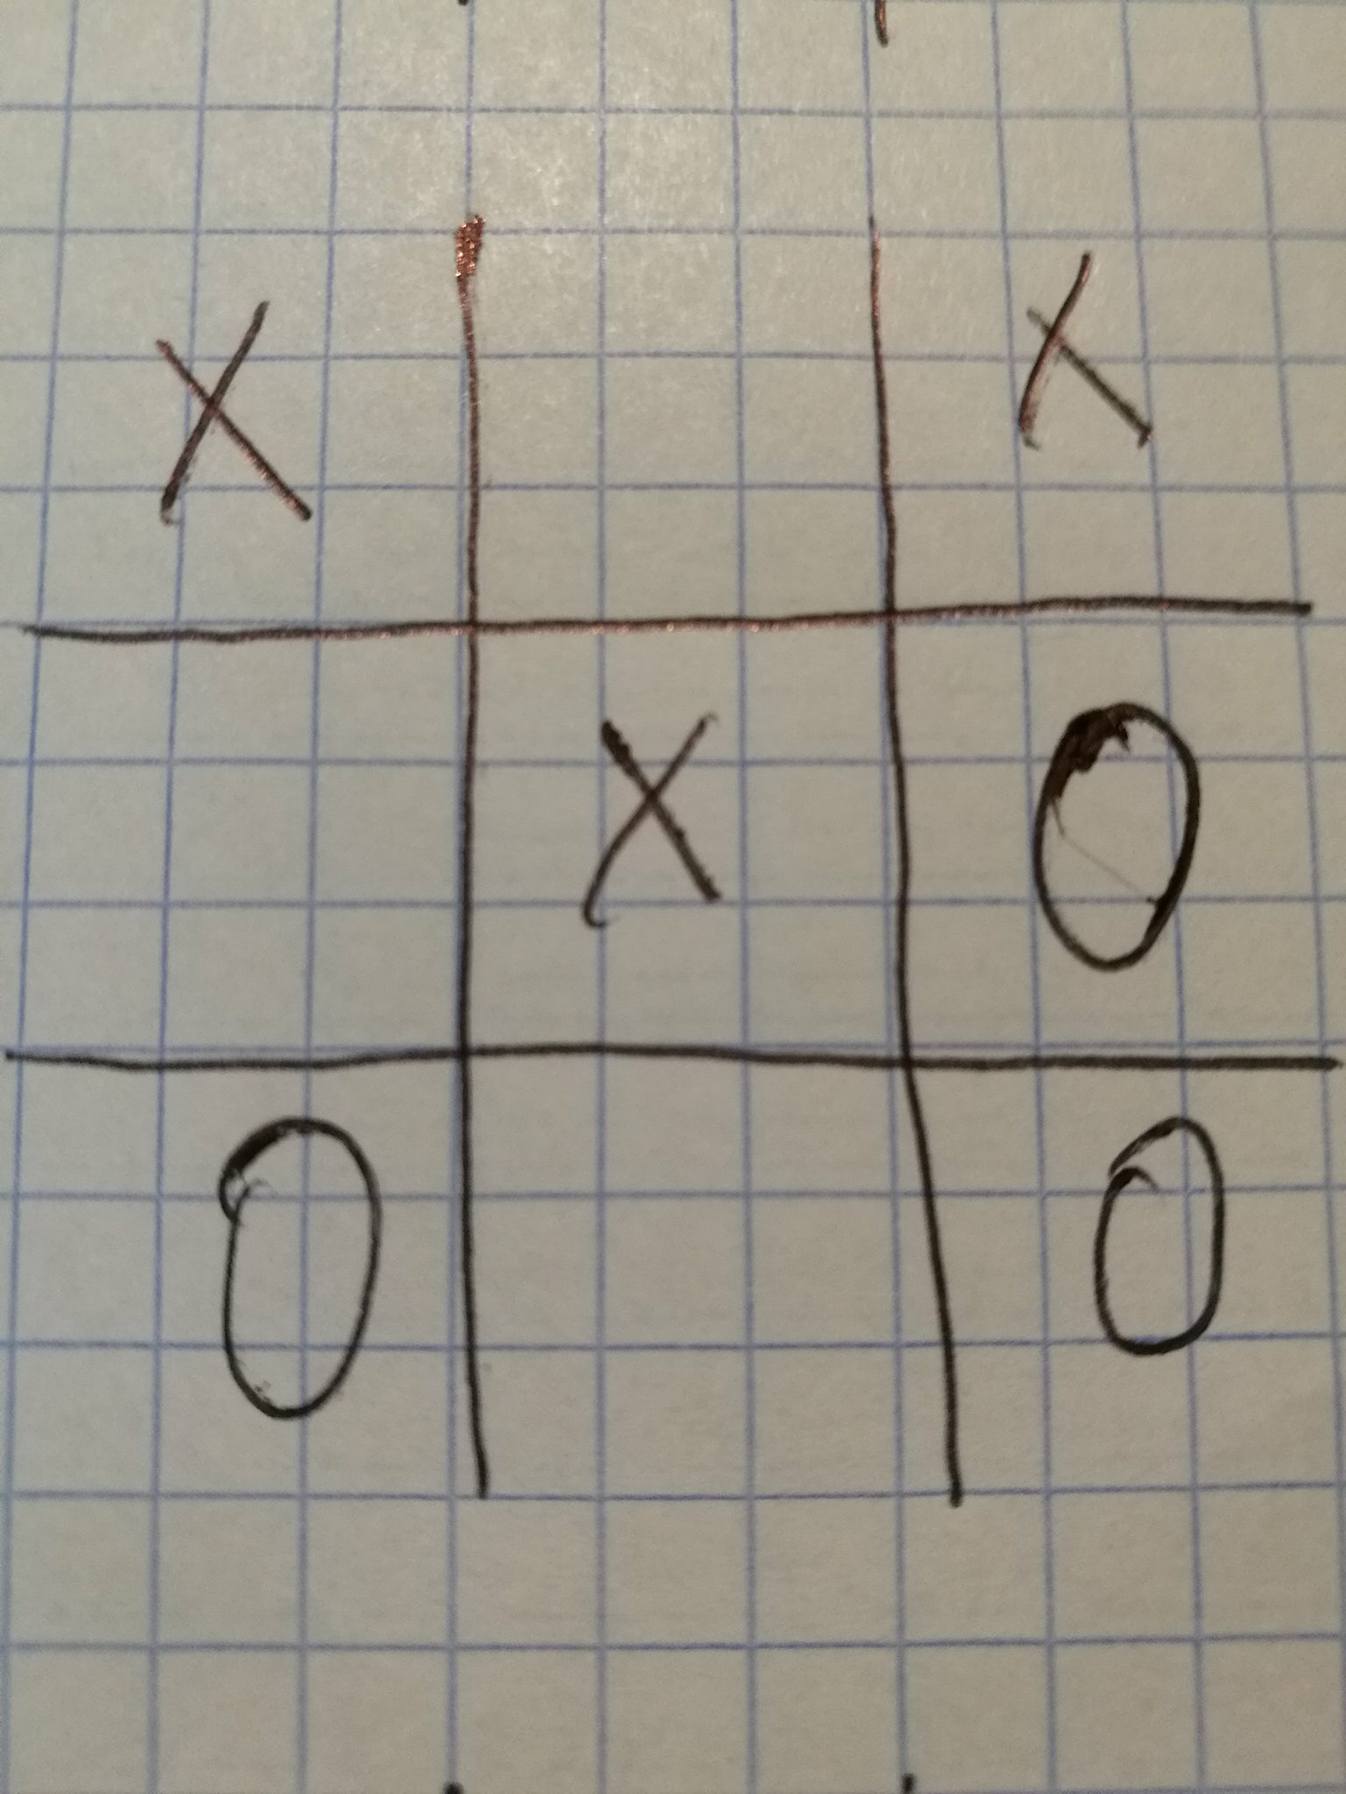 X X
X O
O O